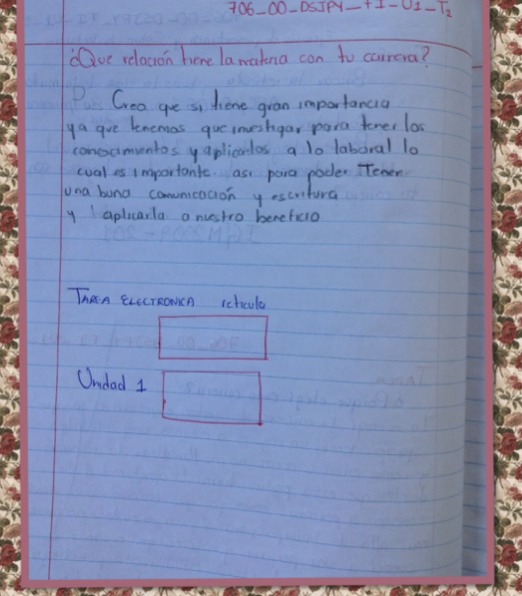 706-00-DSJPY-FI-U1-T2
¿Que relación tiene la materia con tu carrera?
Creo que si tiene gran importancia
ya que tenemos que investigar para tener los
conocimientos y aplicarlos a lo laboral lo
cual es importante asi para poder Tener
una buna comunicación y escritura
y aplicarla a nuestro beneficio
TAREA ELECTRONICA reticula
Unidad 1